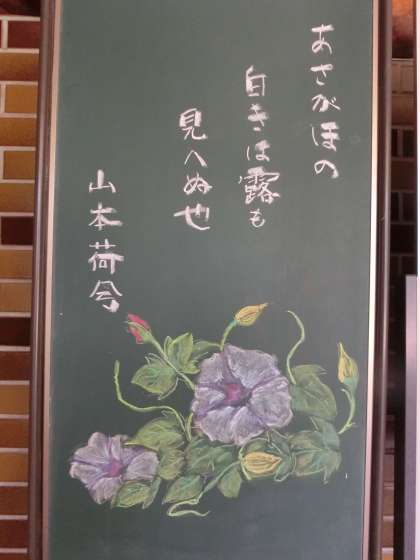 あさがほの
白きは露も
見へぬ也
山本荷兮